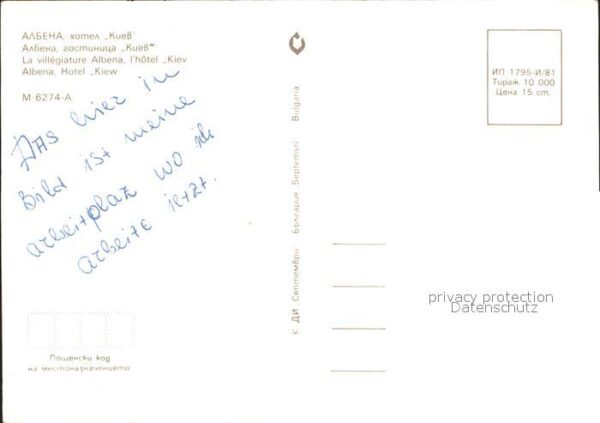 АЛБЕНА, хотел „Киев"
Албена, гостиница „Киев"
La villégiature Albena, l'hôtel „Kiev
Albena, Hotel „Kiew
М 6274-А
DAS hier im
Bild ist meine
arbeitplaz wo ich
arbeite ietzt.
© ДИ Септември България Septemvri Bulgaria
ИП 1795-И/81
Тираж 10 000
Цена 15 ст.
privacy protection
Datenschutz
Пощенски код
на местоназначението